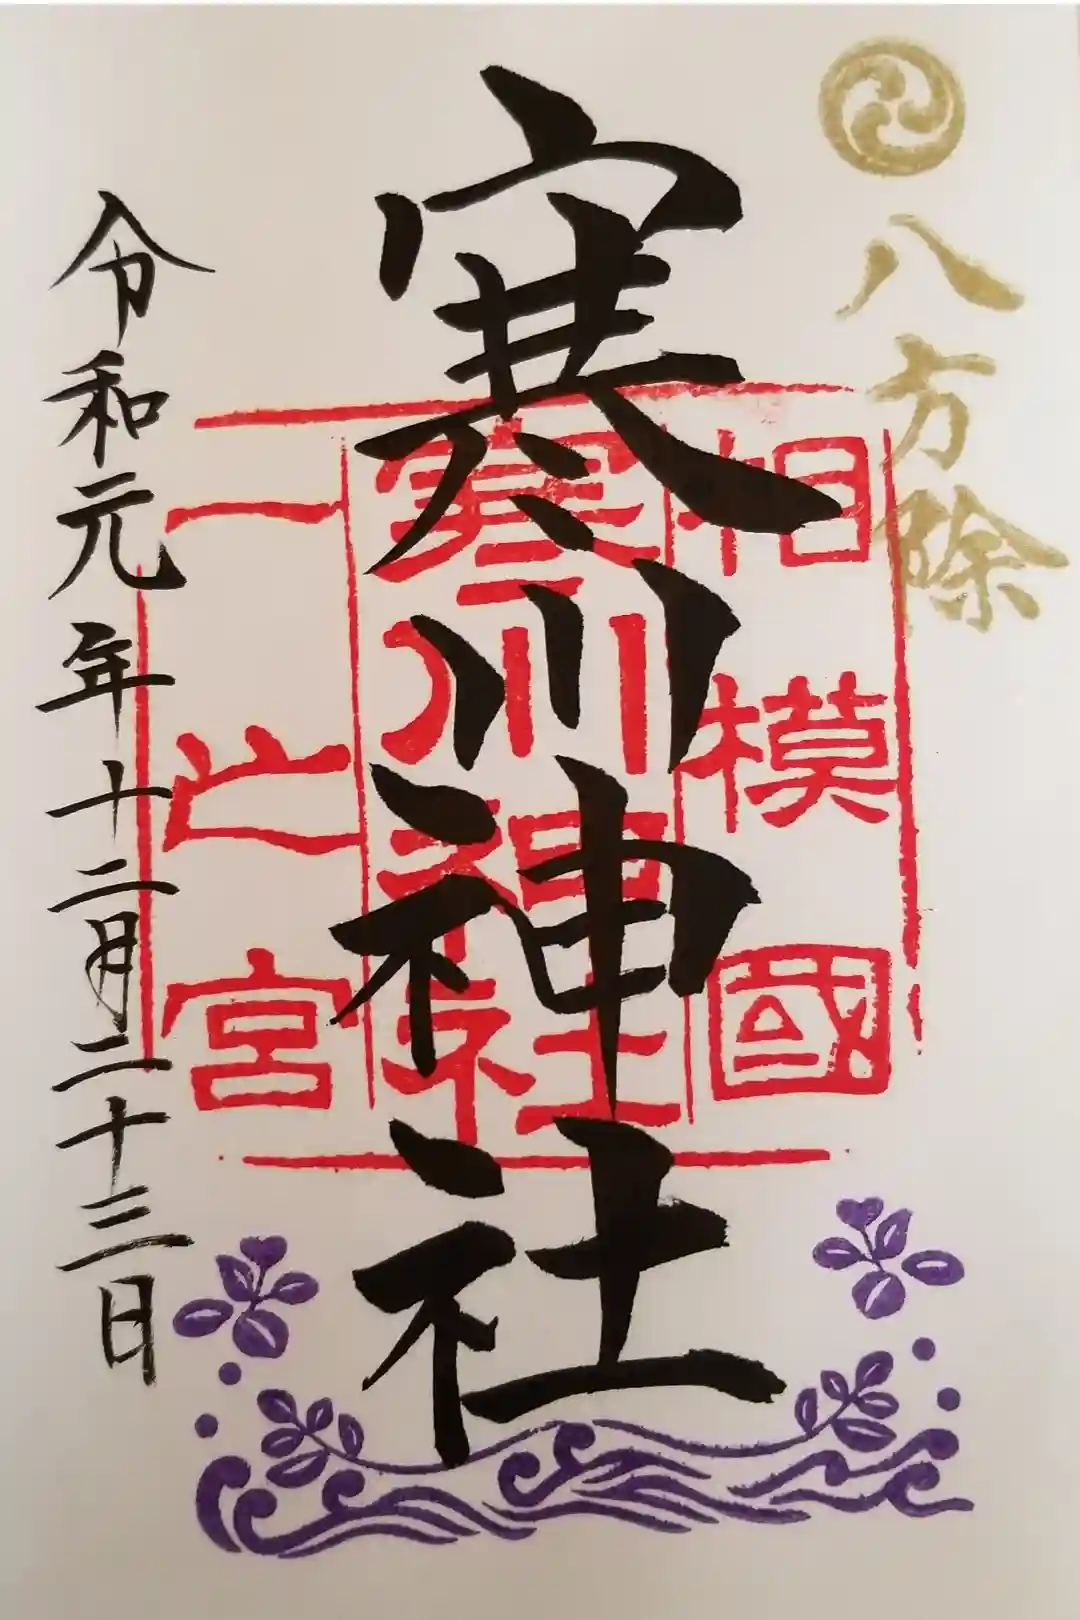 八方除
寒川神社
相模國
寒川神社
一之宮
令和元年十二月二十三日